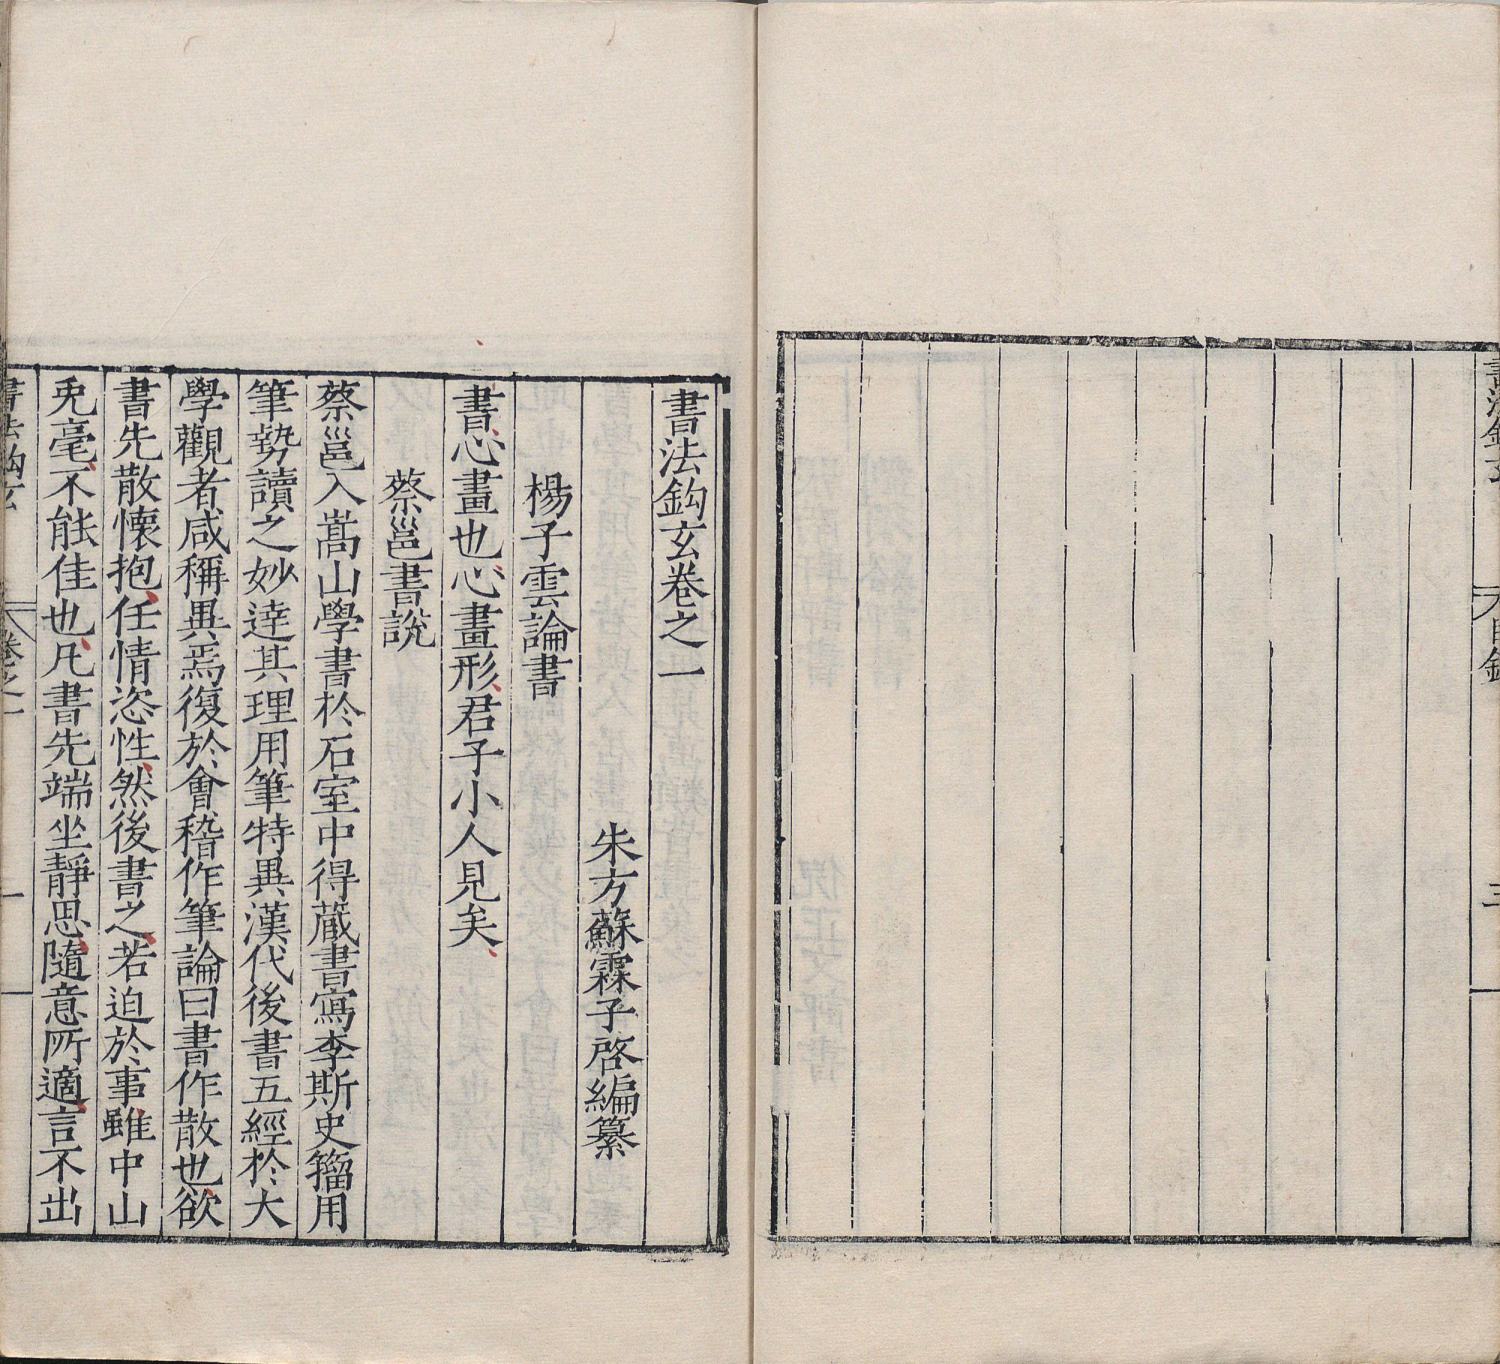 書法鈎玄
目錄
三
書法鈎玄卷之一
朱方蘇霖子啓編纂
楊子雲論書
書心畫也心畫形君子小人見矣
蔡邕書說
蔡邕入嵩山學書於石室中得藏書寫李斯史籀用
筆勢讀之妙達其理用筆特異漢代後書五經於大
學觀者咸稱異焉復於會稽作筆論曰書作散也欲
書先散懷抱任情恣性然後書之若迫於事雖中山
兎毫不能佳也凡書先端坐靜思隨意所適言不出
書法鈎玄
卷之一
一